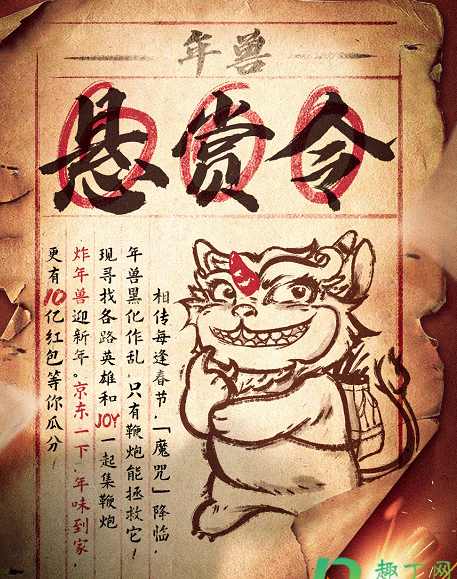 年兽
悬赏令
相传每逢春节，「魔咒」降临，
年兽黑化作乱，只有鞭炮能拯救它！
现寻找各路英雄和JOY一起集鞭炮
炸年兽迎新年。京东一下，年味到家，
更有10亿红包等你瓜分！
趣丁网